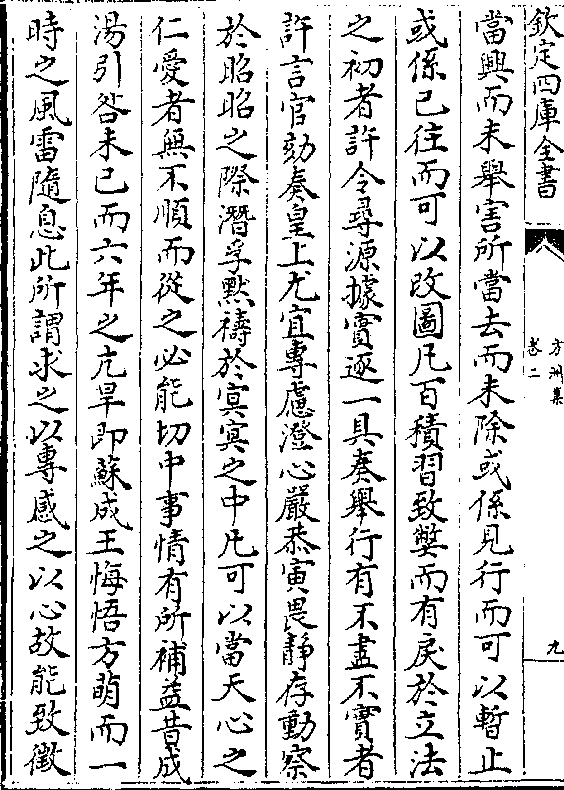 欽定四庫全書
方洲集
卷二
九
當興而未舉害所當去而未除或係見行而可以暫止
或係已往而可以改圖凡百積習致弊而有戾於立法
之初者許令尋源據實逐一具奏舉行有不盡不實者
許言官劾奏皇上尤宜專慮澄心嚴恭寅畏靜存動察
於昭昭之際潛孚黙禱於㝠㝠之中凡可以當天心之
仁愛者無不順而從之必能切中事情有所補益昔成
湯引咎未已而六年之亢旱即蘇成王悔悟方萌而一
時之風雷隨息此所謂求之以專感之以心故能致徵